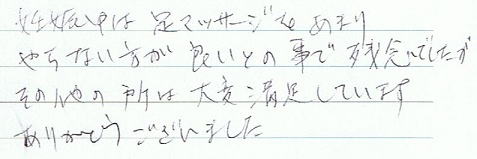 妊娠中は足マッサージをあまり
やらない方が良いとの事で残念でしたが
その他の所は大変満足しています
ありがとうございました